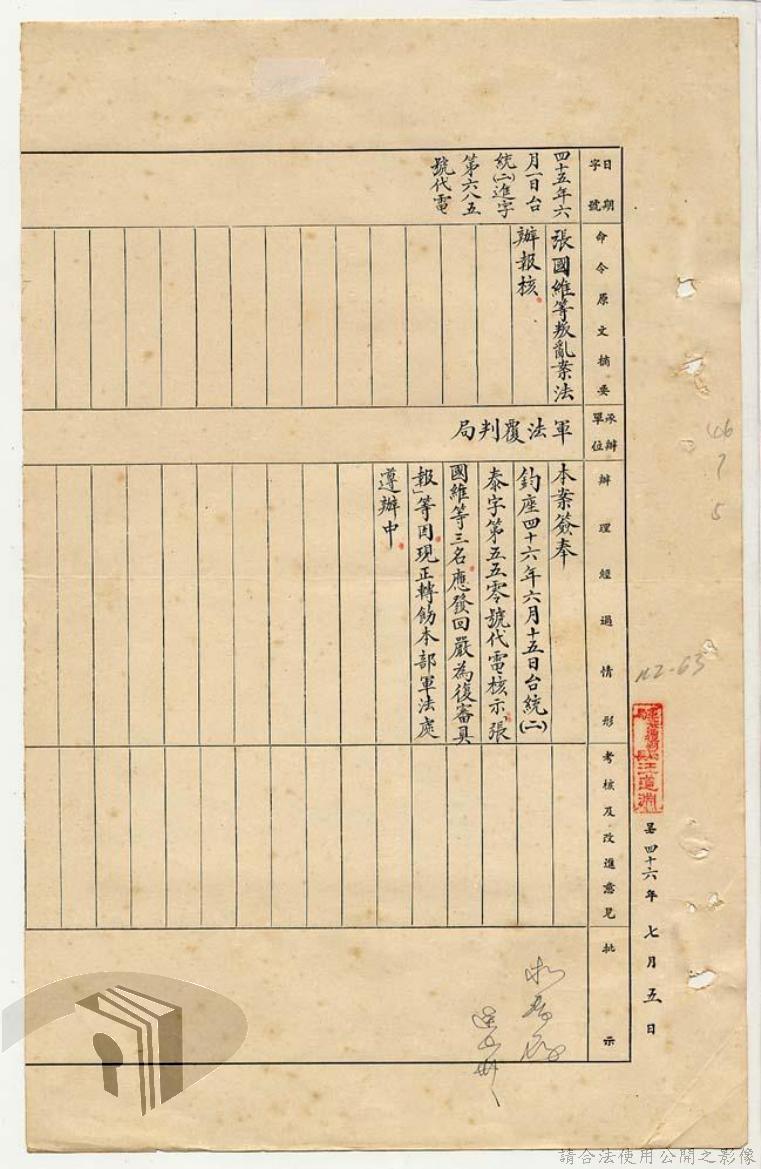 日期
字號
命令原文摘要
承辦
單位
辦理經過情形
考核及改進意見
批示
四十五年六
月一日台
統(二)進字
第六八五
號代電
張國維等叛亂案法
辦報核。
軍法覆判局
本案簽奉
鈞座四十六年六月十五日台統(二)
泰字第五五零號代電核示張
國維等三名應發回嚴為復審具
報」等因現正轉飭本部軍法處
遵辦中。
汪道淵
呈四十六年七月五日
46
7
5
112-63
請合法使用公開之影像